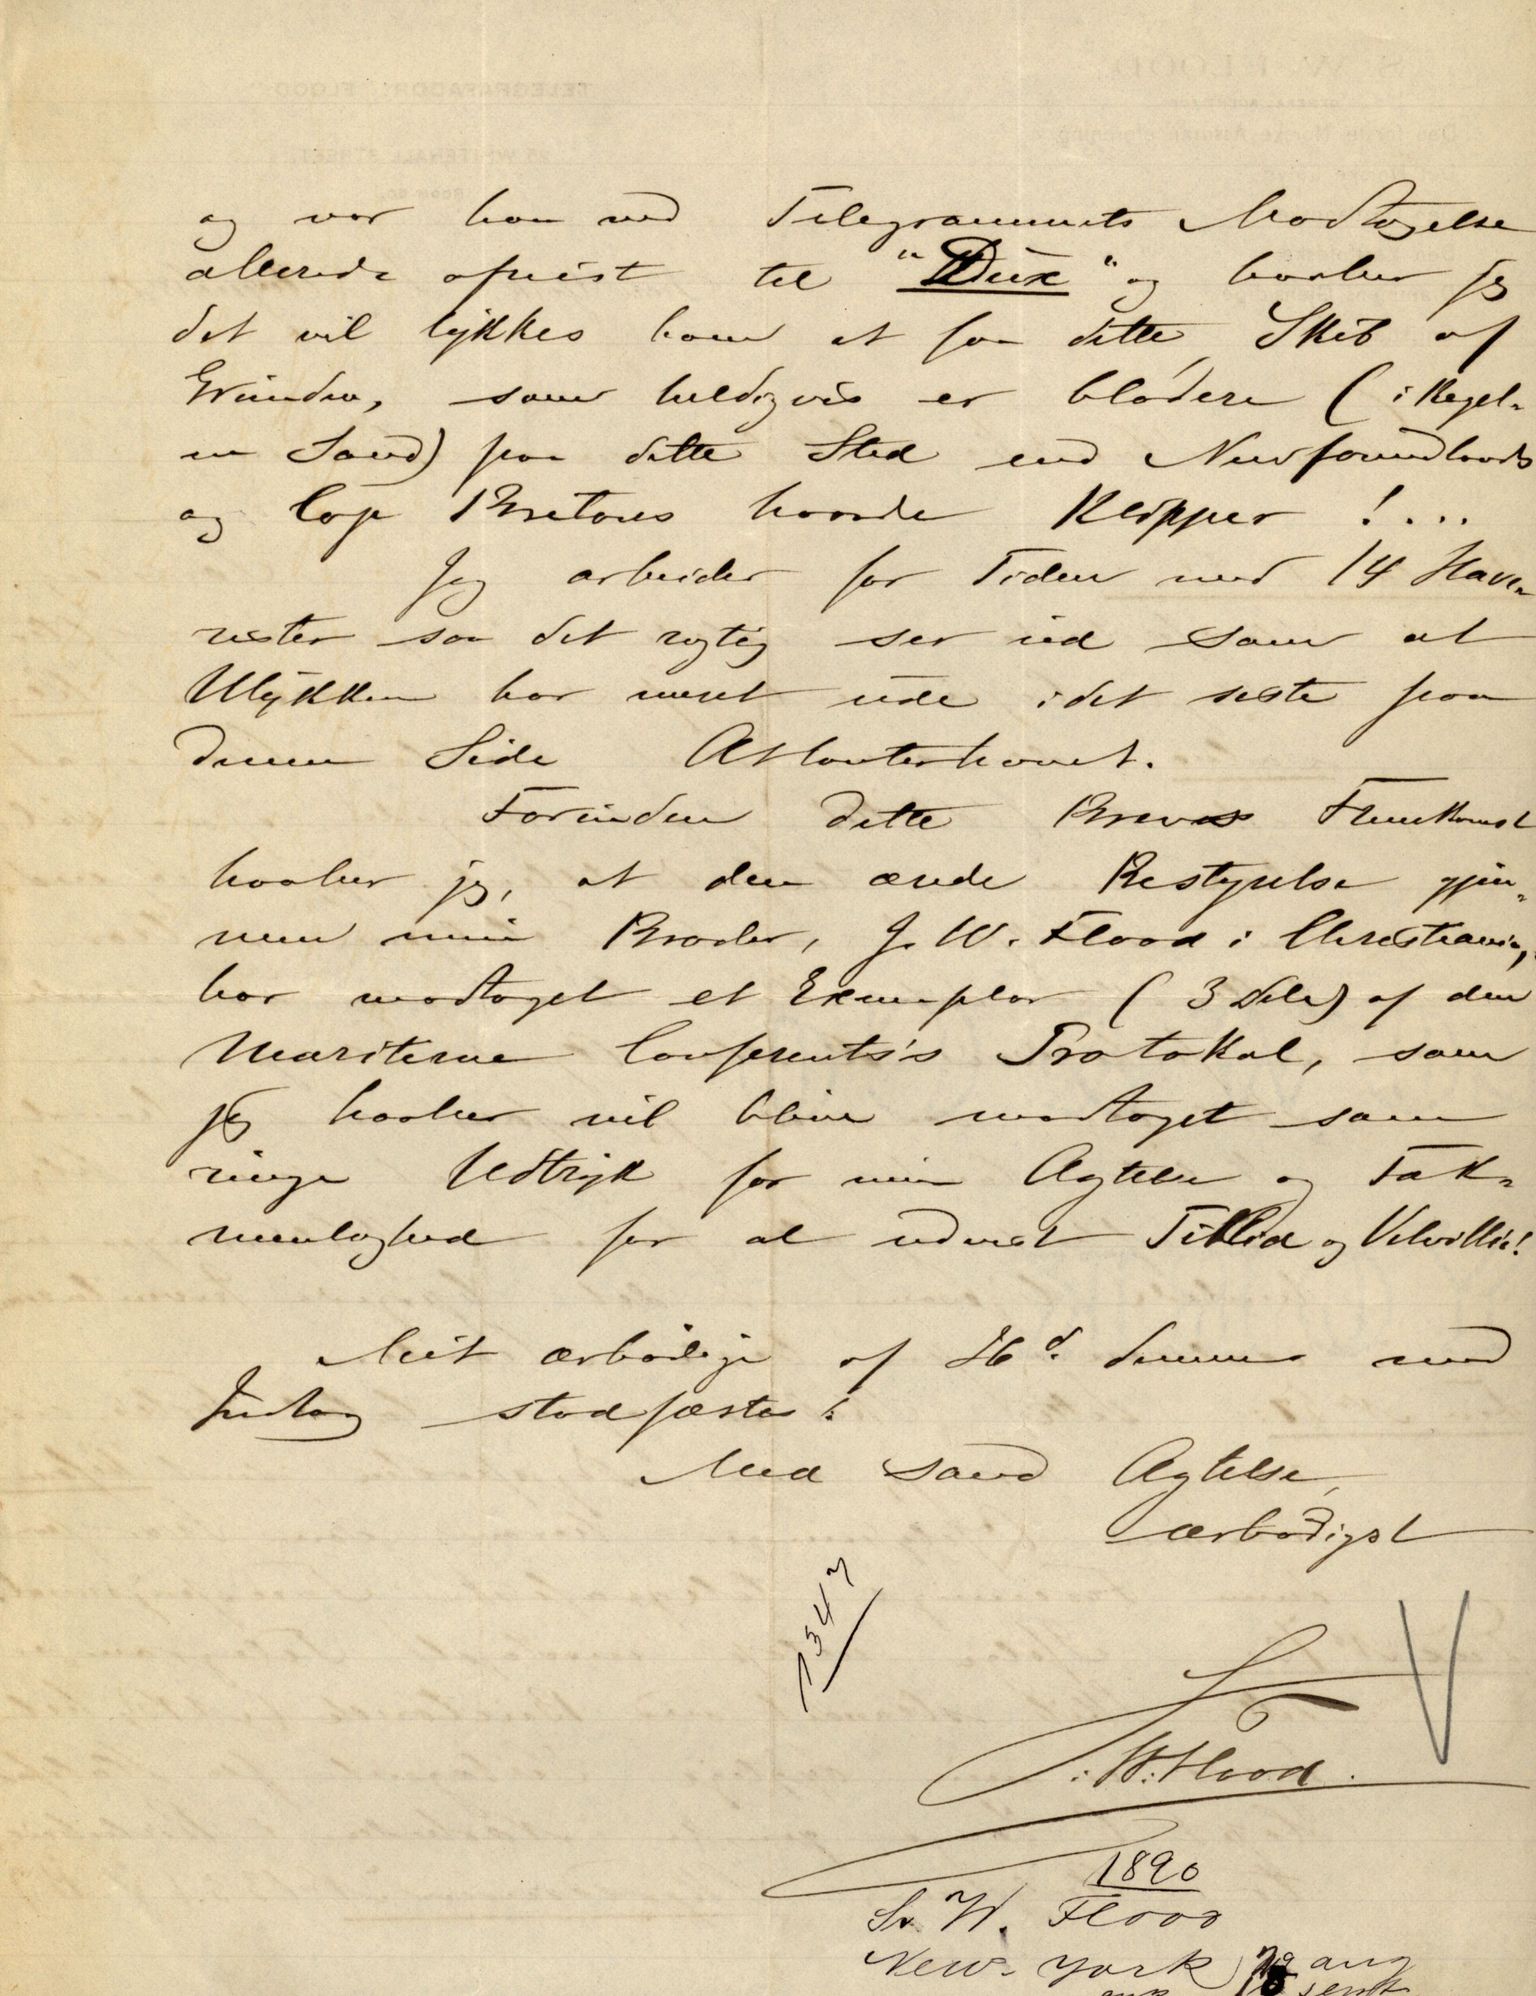 og var han ved Telegrammets Modtagelse
allerede afreist til "Dux" og haaber jeg
det vil lykkes ham at faa dette Skib af
Grunden, som heldigvis er blödere (i Regel-
en Sand) paa dette Sted end Newfoundlands
og Cap Bretons haarde Klipper!...
Jeg arbeider for Tiden med 14 Hava-
rister saa det rigtig ser ud som at
Ulykken har været ude i det siste paa
denne Side Atlanterhavet.
Forinden dette Brevs Fremkomst
haaber jeg, at den ærede Bestyrelse gjen-
nem min Broder, J. W. Flood i Christiania,
har modtaget et Exemplar (3 Dele) af den
Maritime Conferents's Protokol, som
jeg haaber vil blive modtaget som
ringe Udtryk for min Agtelse og Tak-
nemlighed for al udvist Tillid og Velvillie!
Mit ærbödige af 26d. dennes med
Indlæg stadfæstes!
Med sand Agtelse,
ærbödigst
S. W. Flood.
1347
1890
S. W. Flood
New-York 29 aug
sept